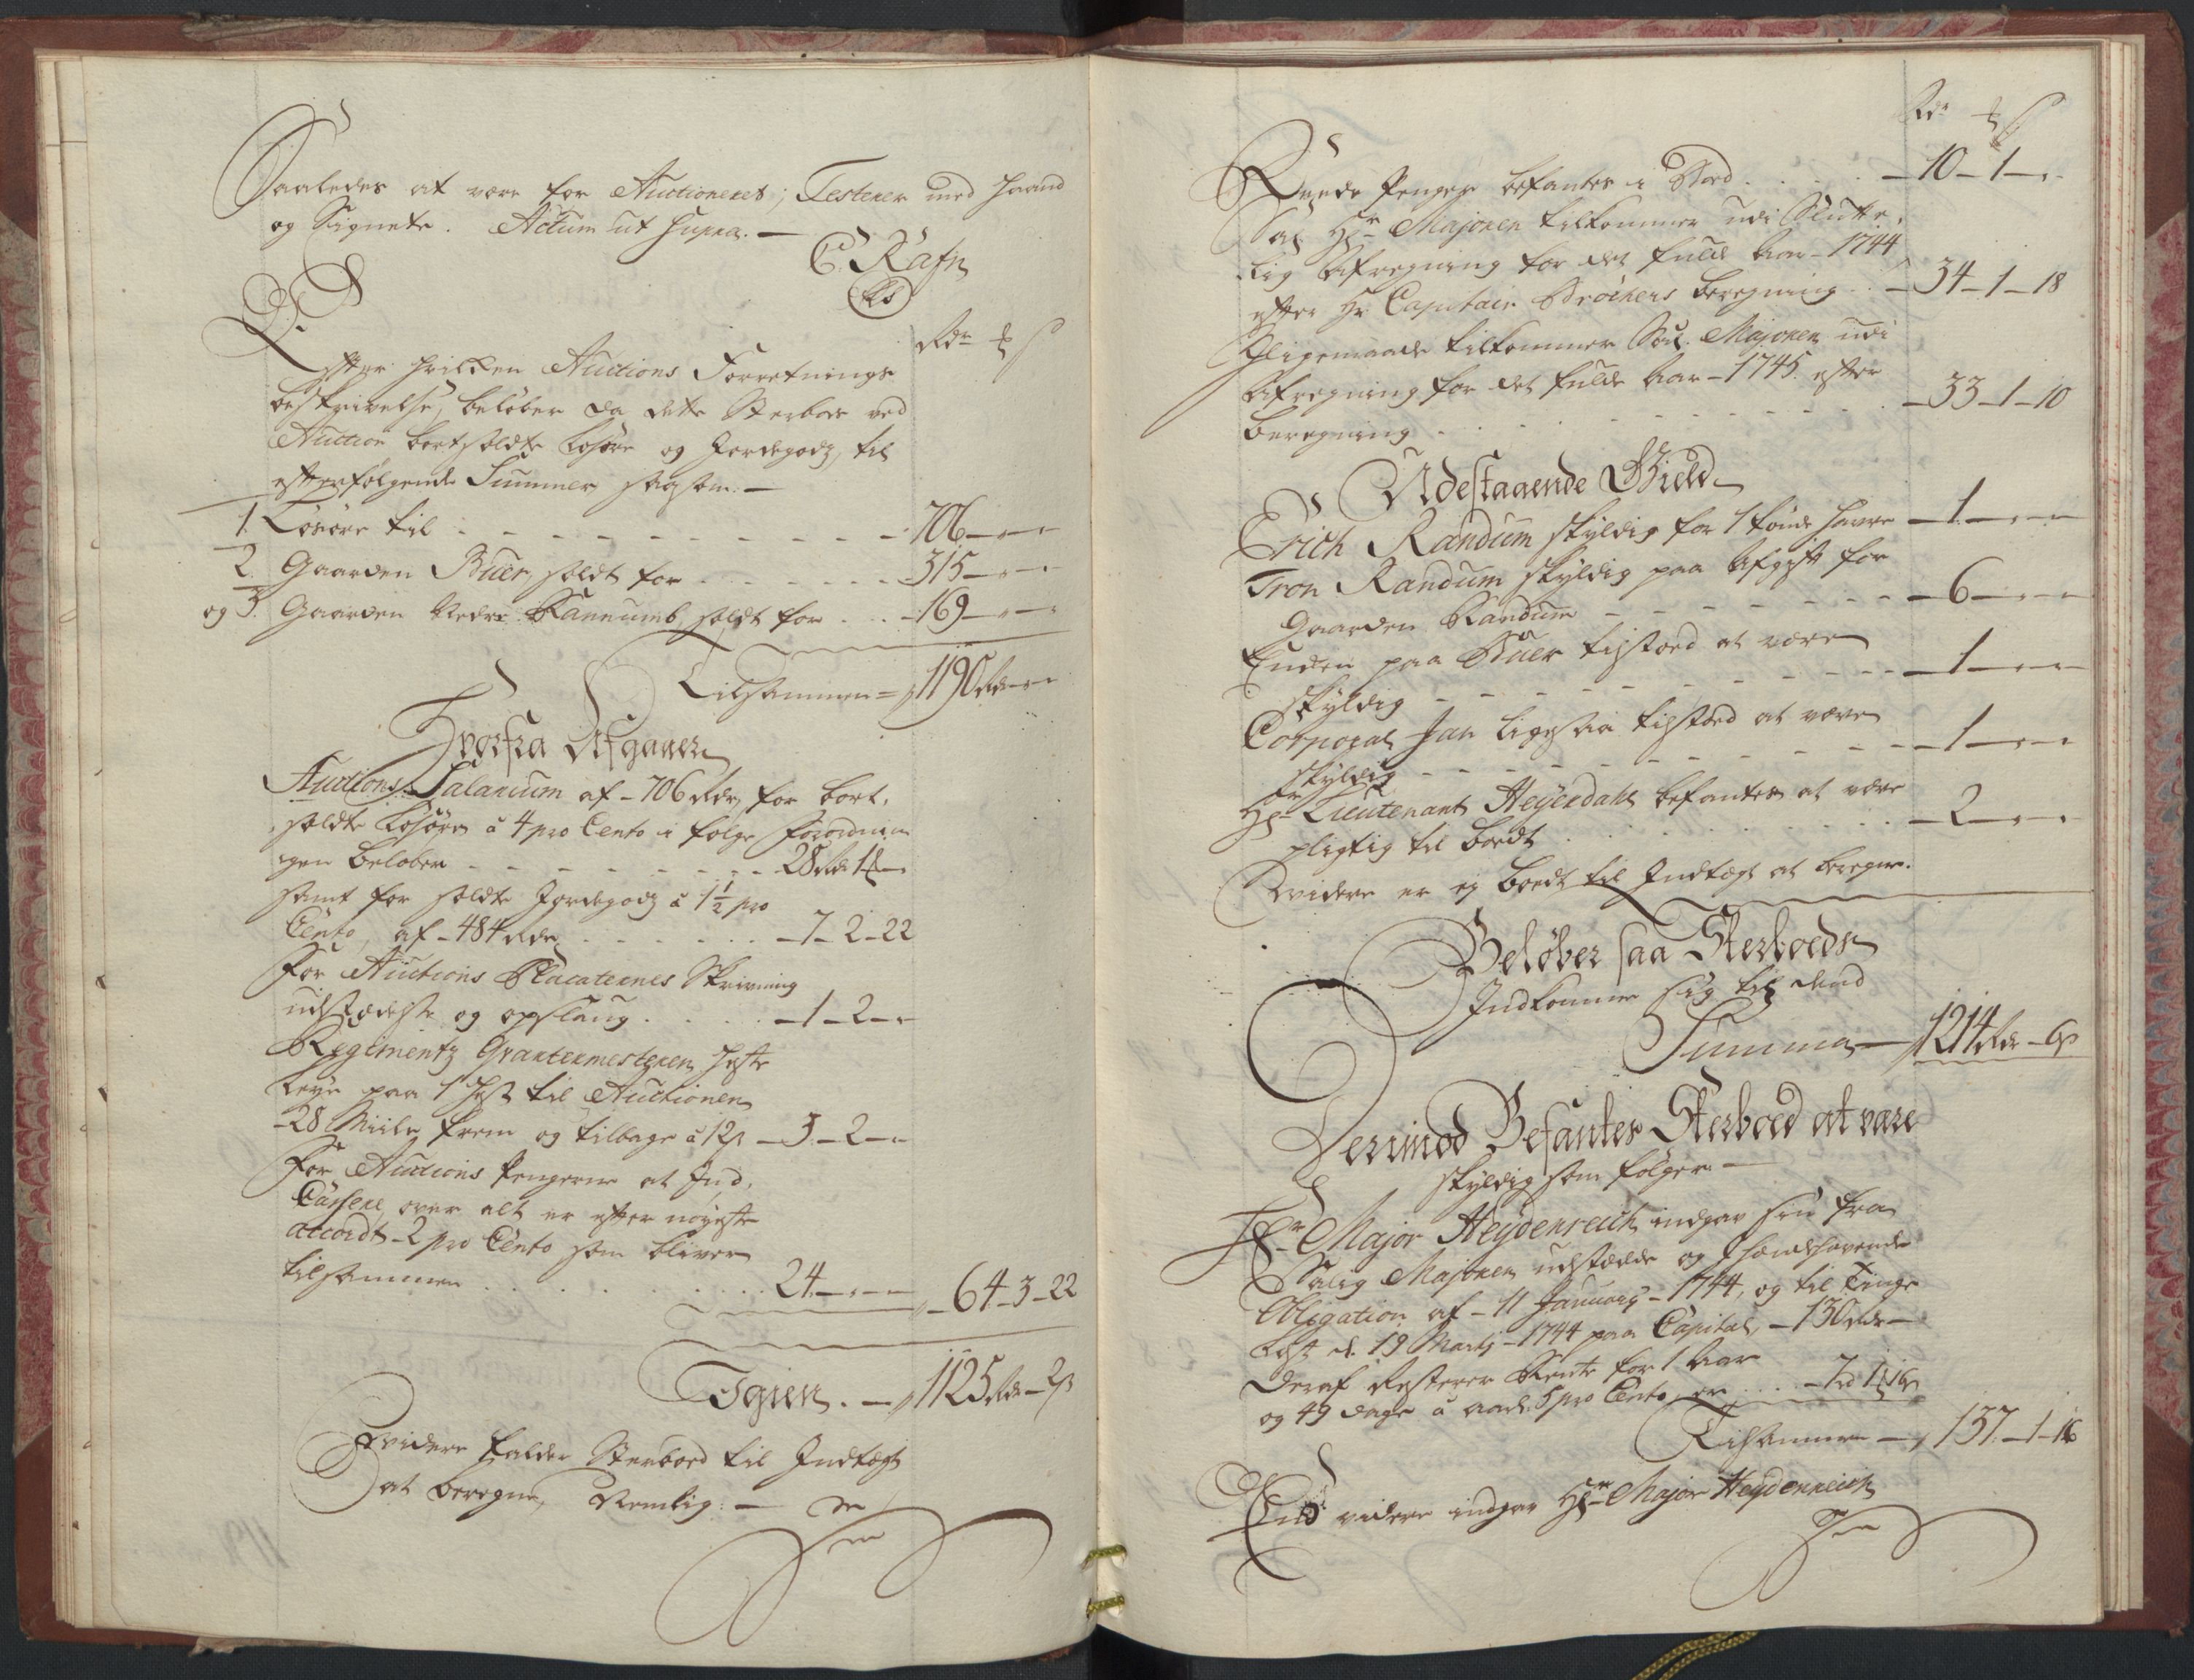 Saaledes at være for Auctioneret; Testerer med Haand
og Signete. Actum ut supra. —
C. Rafn
(LS)
Rdr ß
Efter hvilken Auctions Forretnings
beskrivelse, beløber da dette Sterboe ved
Auction bortsoldte Løsøre og Jordegodz, til
efterfølgende Summer saasom: —
1. Løsøre til - - - 706 — " — "
2. Gaarden Buer, soldt for - - - 315 — " — "
og 3. Gaarden Nedre Rannumb, soldt for - - - 169 — " — "
Tilsammen = 1190 Rdr — "
Hvorfra Afgaaer
Auctions Salarium af - 706 Rdr, for bort,
soldte Løsøre â 4 pro Cento i følge Forordnin
gen beløber - - - 28 Rdr 1 —
samt for soldte Jordegodz â 1½ pro
Cento, af - 484 Rdr - - - 7 - 2 - 22
For Auctions Placaternes Skrivning
udstædelse og opslaug . . . — 1 — 2 — "
Regimentz Qvarteermesteren, heste
leye paa 1 Hest til Auctionen
- 28 Miile frem og tilbage â 12 ß — 3 — 2 — "
For Auctions Pengerne at Ind,
Cassere, over alt er efter nøyeste
accordt - 2 pro Cento som bliver
tilsammen . . . 24 — " — " — 64 - 3 - 22
Igien. — 1125 Rdr — 2 ß
Hvidere falder Sterboed til Indtægt
at beregne, Nemlig: —
Rdr ß
Rede Penger befantes i Boed . . . — 10 — 1 — "
Sal Hr Majoren tilkommer udi Slutte,
lig Afregning for det fulde Aar - 1744
efter Hr Capitain Bröchers beregning . . — 34 — 1 — 18
Ligemaade tilkommer Sal. Majoren udi
Afregning for det fulde Aar - 1745. efter
beregning . . . — 33 — 1 — 10
Udestaaende Gield
Erich Randum skyldig for 1 tønde Havre — 1 — " — "
Tron Randum skyldig paa Afgift for
Gaarden Randum - - - — 6 — " — "
Enden paa Buer tilstoed at være
skyldig - - - — 1 — " — "
Corporal Jan ligesaa tilstoed at være
skyldig - - - — 1 — " — "
Hr Lieutenant Heyerdahl befantes at være
pligtig til boedt . . . — 2 — " — "
Hvidere er ey boedt til Indtægt at beregne.
Beløber saa Sterboeds
Indkomme sig til dend
Summa — 1214 Rdr — 6 ß
Derimod Befantes Sterboed at være
skyldig som følger —
Hr Major Heydenreich indgav sin fra
Salig Majoren udstædde og
Obligation af - 11 January - 1744, og til Tinge
læst d. 19 Marty - 1744 paa Capital, — 130 Rdr —
deraf Resterer Rente for 1 Aar
og 49 dage â aarl. 5 pro Cento, er . . . — 7 rd 1 16 ß
Tilsammen — 137 — 1 — 16
End videre indgav Hr Major Heydenreich